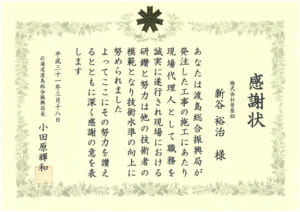 感謝状
株式会社菅原組
新谷裕治 様
あなたは渡島総合振興局が
発注した工事の施工にあたり
現場代理人として職務を
誠実に遂行され現場における
研鑽と努力は他の技術者の
模範となり技術水準の向上に
努められました
よってここにその努力を讃え
るとともに深く感謝の意を表
します
平成三十一年三月十八日
北海道渡島総合振興局長
小田原輝和